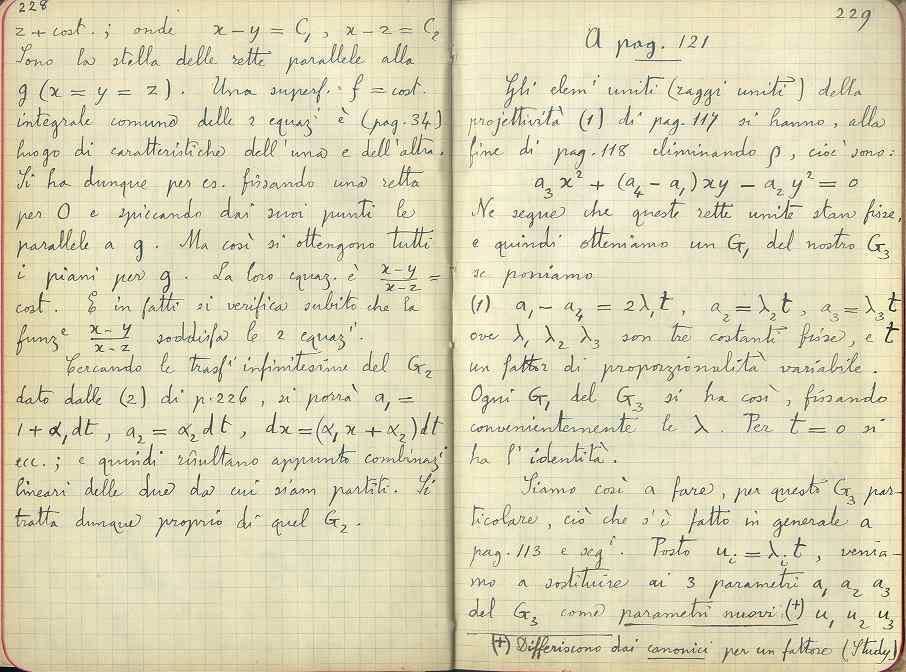 228
z + cost. ; onde x − y = C₁ , x − z = C₂
Sono la stella delle rette parallele alla
g (x = y = z) . Una superf. f = cost.
integrale comune delle 2 equaz.ⁱ è (pag. 34)
luogo di caratteristiche dell'una e dell'altra.
Si ha dunque per es. fissando una retta
per O e spiccando dai suoi punti le
parallele a g . Ma così si ottengono tutti
i piani per g . La loro equaz. è (x−y)/(x−z) =
cost. E in fatti si verifica subito che la
funz.ᵉ (x−y)/(x−z) soddisfa le 2 equaz.ⁱ.
Cercando le trasf.ⁱ infinitesime del G₂
dato dalle (2) di p. 226 , si porrà a₁ =
1 + α₁dt , a₂ = α₂dt , dx = (α₁x + α₂)dt
ecc. ; e quindi risultano appunto combinaz.ⁱ
lineari delle due da cui siam partiti. Si
tratta dunque proprio di quel G₂ .
229
A pag. 121
Gli elem.ⁱ uniti (raggi uniti) della
projettività (1) di pag. 117 si hanno, alla
fine di pag. 118 eliminando ρ , cioè sono:
a₃x² + (a₄ − a₁) xy − a₂y² = 0
Ne segue che queste rette unite stan fisse,
e quindi otteniamo un G₁ del nostro G₃
se poniamo
(1) a₁ − a₄ = 2λ₁t , a₂ = λ₂t , a₃ = λ₃t
ove λ₁ λ₂ λ₃ son tre costanti fisse, e t
un fattor di proporzionalità variabile.
Ogni G₁ del G₃ si ha così, fissando
convenientemente le λ . Per t = 0 si
ha l'identità.
Siamo così a fare, per questo G₃ par-
ticolare, ciò che s'è fatto in generale a
pag. 113 e seg.ⁱ. Posto uᵢ = λᵢt , venia-
mo a sostituire ai 3 parametri a₁ a₂ a₃
del G₃ come parametri nuovi (+) u₁ u₂ u₃
(+) Differiscono dai canonici per un fattore (Study)